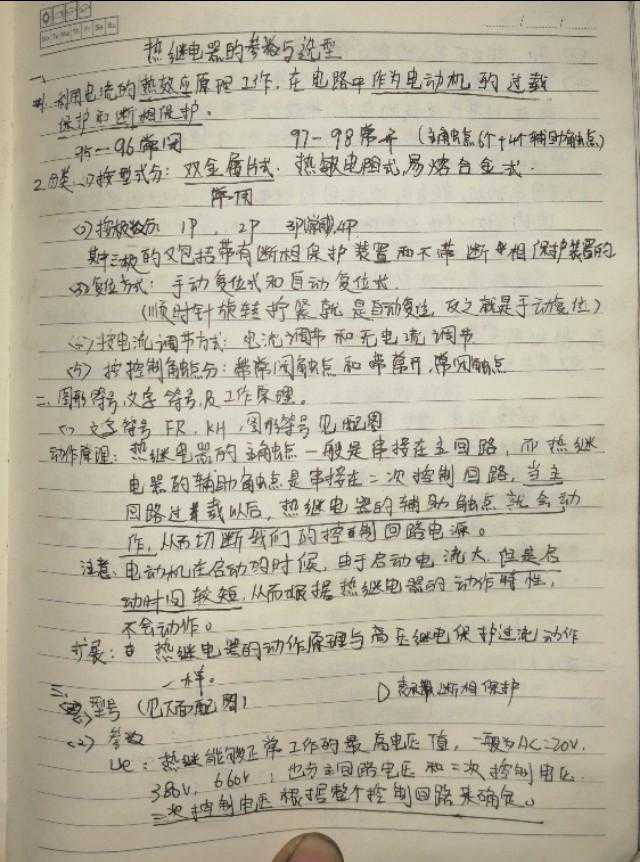 热继电器的参数与选型
一、
1. 利用电流的热效应原理工作,在电路中作为电动机的过载
保护和断相保护。
95-96常闭 97-98常开 (主触点6个+4个辅助触点)
2.分类 (1)按型式分: 双金属片式、热敏电阻式,易熔合金式.
常用
(2)按极数分 1P、2P 3P(常用).4P
其中三极的又包括带有断相保护装置和不带断相保护装置的
(3)复位方式: 手动复位式和自动复位式.
(顺时针旋转拧紧就是自动复位,反之就是手动复位)
(4)按电流调节方式: 电流调节和无电流调节
(5)按控制触点分: 带常闭触点和带常开,常闭触点
二、图形符号、文字符号及工作原理。
(1)文字符号 FR、KH ,图形符号见配图
动作原理: 热继电器的主触点一般是串接在主回路,而热继
电器的辅助触点是串接在二次控制回路,当主
回路过载以后,热继电器的辅助触点就会动
作,从而切断我们的控制回路电源。
注意、电动机在启动的时候,由于启动电流大,但是启
动时间较短,从而根据热继电器的动作特性,
不会动作。
扩展: 热继电器的动作原理与高压继电保护过流动作
一样。
三、
型号 (见下面配图) D 表示带断相保护
(2) 参数
Ue: 热继能够正常工作的最高电压值,一般为AC220V.
380V, 660V ; 也分主回路电压和二次控制电压.
二次控制电压根据整个控制回路来确定。